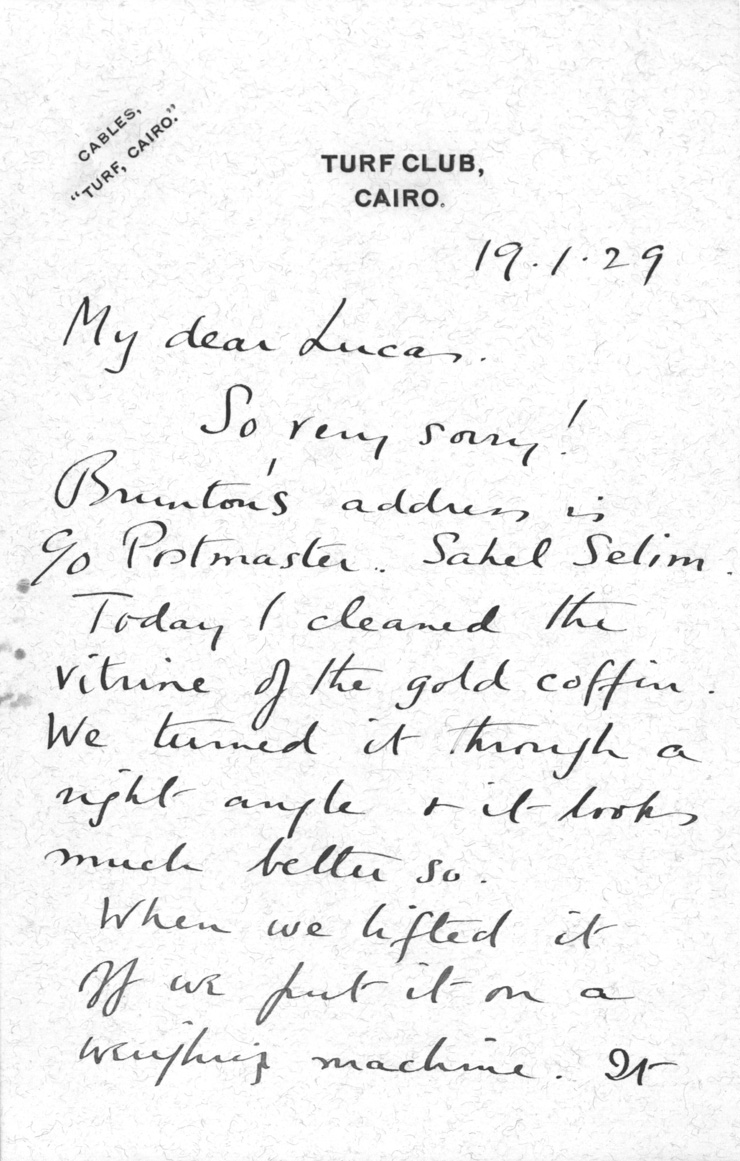 CABLES,
"TURF, CAIRO."
TURF CLUB,
CAIRO.
19.1.29
My dear Lucas.
So very sorry!
Brunton's address is
c/o Postmaster. Sahel Selim.
Today I cleaned the
vitrine of the gold coffin.
We turned it through a
right angle & it looks
much better so.
When we lifted it
off we put it on a
weighing machine. It